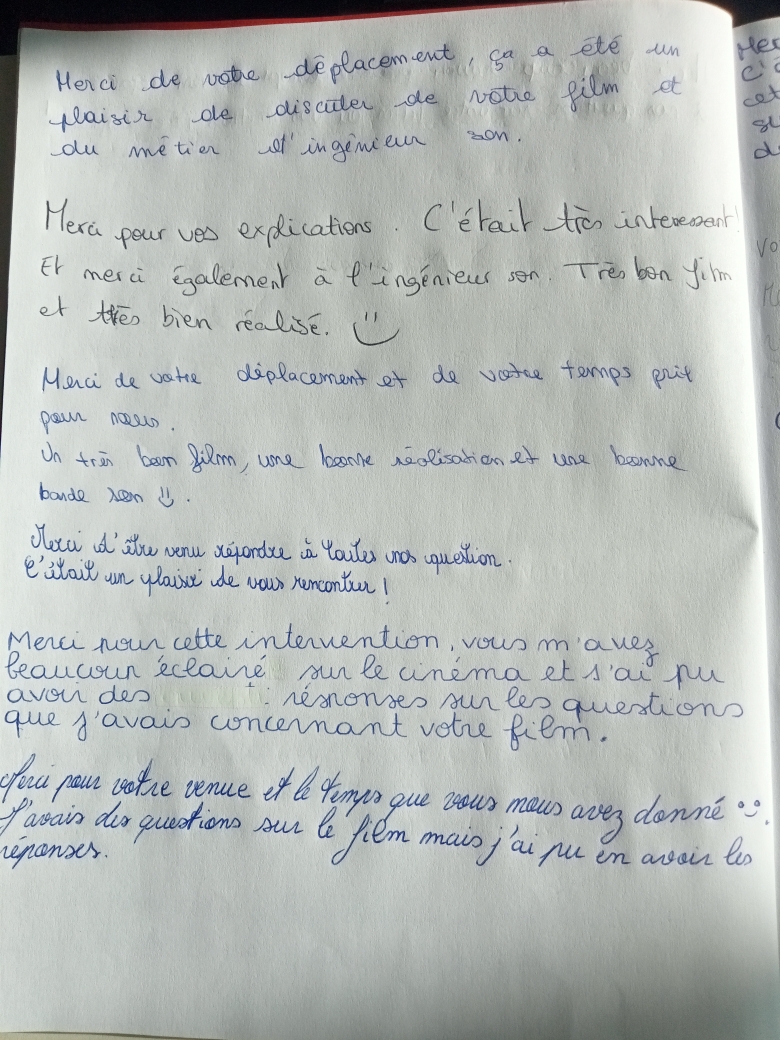 Merci de votre déplacement, ça a été un
plaisir de discuter de votre film et
du métier d'ingénieur son.
Merci pour vos explications. C'était très interessant!
Et merci également à l'ingénieur son. Très bon film
et très bien réalisé.
Merci de votre déplacement et de votre temps prit
pour nous.
Un très bon film, une bonne réalisation et une bonne
bande son.
Merci d'être venu répondre à toutes nos question.
C'était un plaisir de vous rencontrer!
Merci pour cette intervention, vous m'avez
beaucoup éclairé sur le cinéma et j'ai pu
avoir des réponses sur les questions
que j'avais concernant votre film.
Merci pour votre venue et le temps que vous nous avez donné
J'avais des questions sur le film mais j'ai pu en avoir les
réponses.
Mer
C'
cet
d
vo